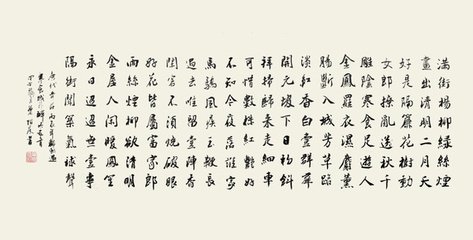 滿街楊柳綠絲煙
畫出清明二月天
好是隔簾花樹動
女郎撩亂送秋千
雕陰寒食足遊人
金鳳羅衣濕麝薰
腸斷入城芳草路
淡紅香白一群群
開元坡下日初斜
拜掃歸來走鈿車
可惜數株紅艷好
不知今夜落誰家
馬驕風疾玉鞭長
過去唯留一陣香
閑客不須燒破眼
好花皆屬富家郎
雨絲煙柳欲清明
金屋人閒暖鳳笙
永日迢迢無一事
隔街聞築氣毬聲
唐代韋莊丙辰年鄜州遇
寒食城外醉吟五首